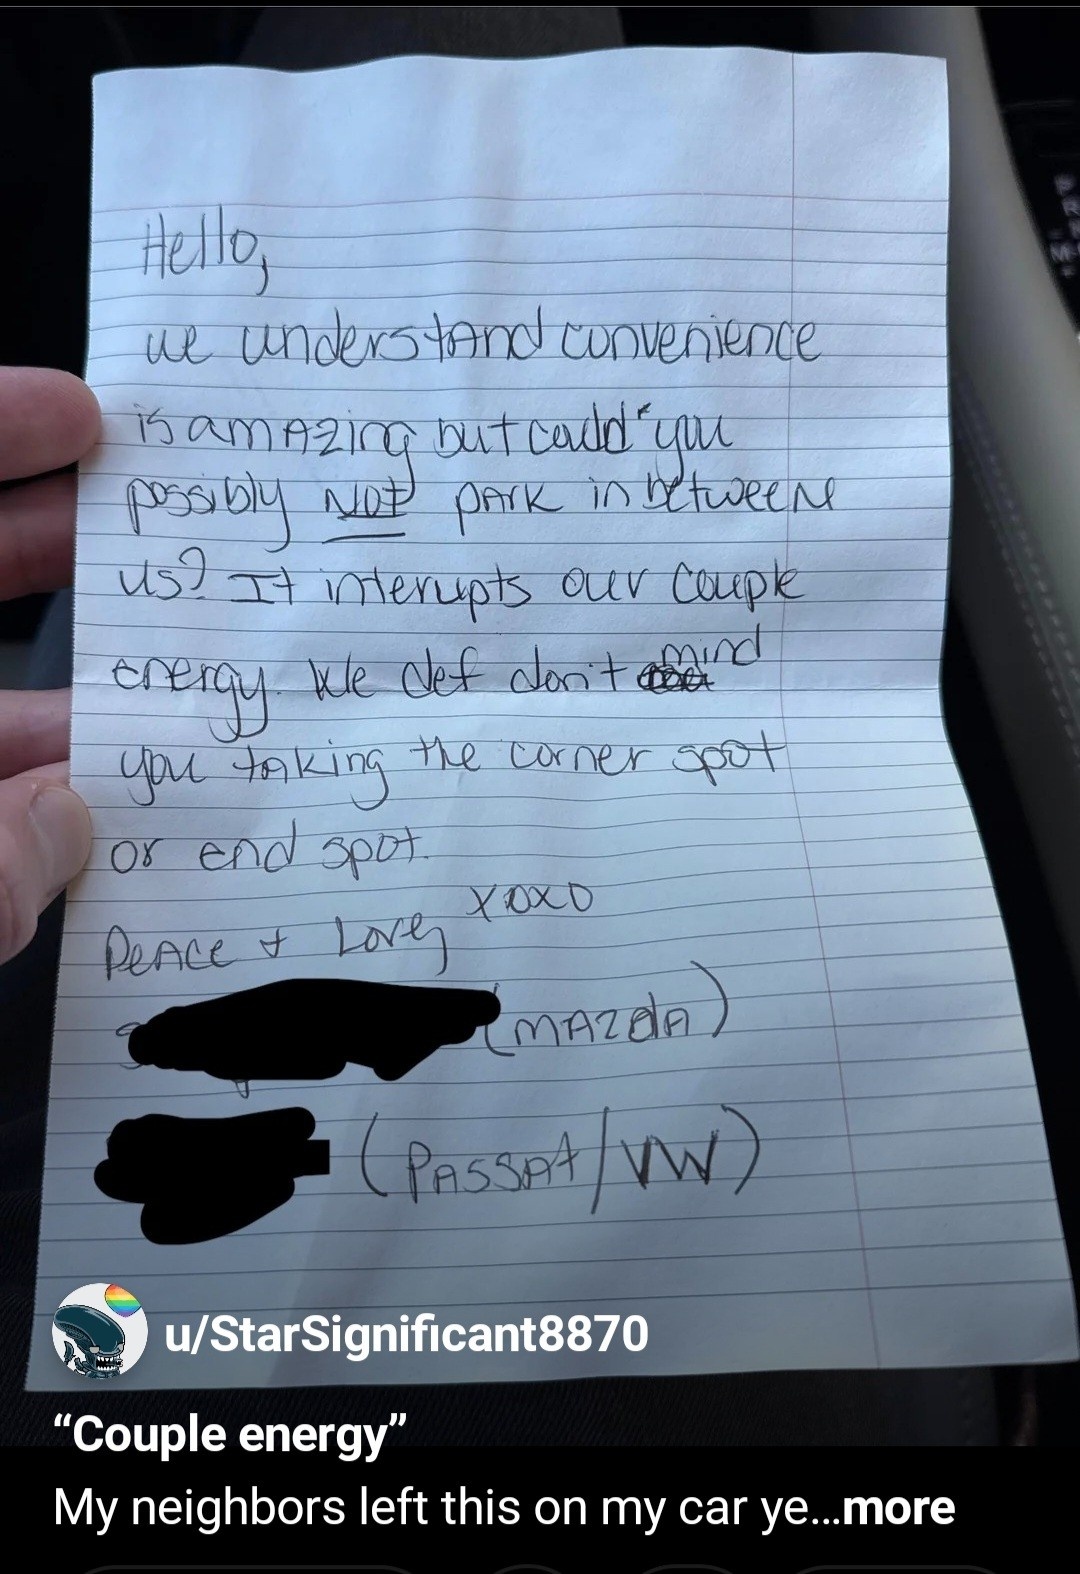 Hello,
we understand convenience
is amazing but could you
possibly NOT park in between
us? It interupts our couple
energy. We def don't mind
you taking the corner spot
or end spot.
XOXO
Peace + Love,
(MAZdA)
(PASSAt/VW)
u/StarSignificant8870
“Couple energy”
My neighbors left this on my car ye...more